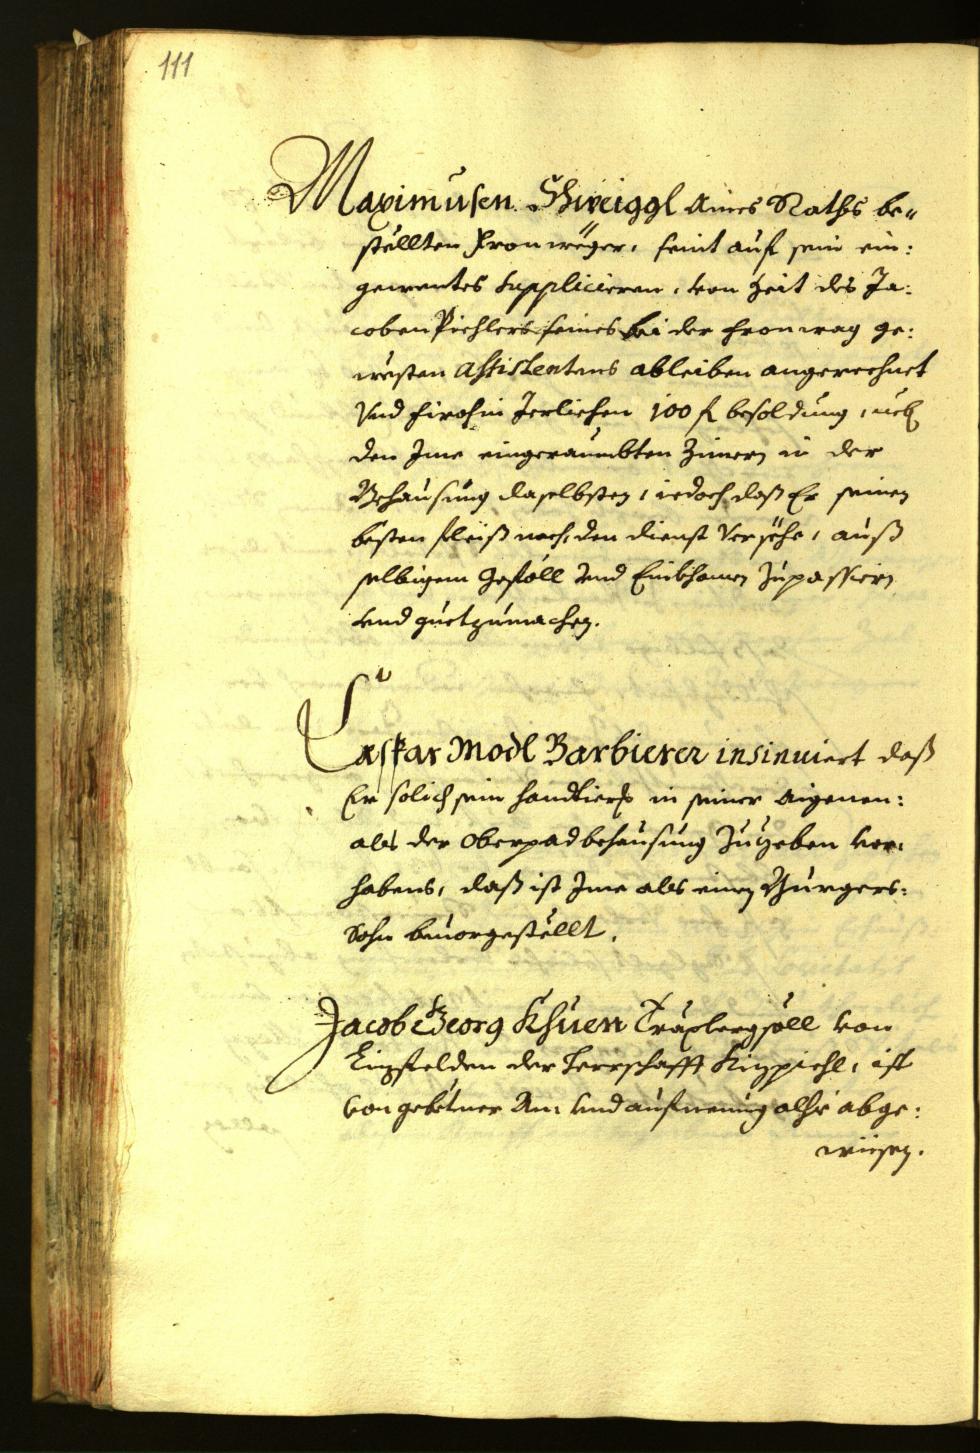 111
Maximusen Schweiggl Aines Raths be„
stöllten Fronwöger, seint auf sein ein:
gewentes Supplicieren, von Zeit des Ja:
coben Pichlers seines bei der fronwag ge:
westen Assistentens ableiben angerechnet
Vnd hirohin Jerlichen 100 f besoldung, neb
den Jme eingeraumbten Zimern in der
Behausung daselbsten, iedoch daß Er seinen
besten fleiß nach, den dienst Versöhe, auß
selbigem Geföll Vnd Einkhomen Zupassiern
vnd guetzumachen.
Caspar Modl Barbierer insinuiert daß
Er solich sein handtierh in seiner Aigenen:
als der Oberpadbehausung Zutreiben vor:
habens, daß ist Jme als einen Burgers:
Sohn beuorgestöllt.
Jacob Georg Khuen Träxlergsöll von
der Herrschafft Kizpichl, ist
von gebetner An: vnd aufnemung alhie abge:
wisen.